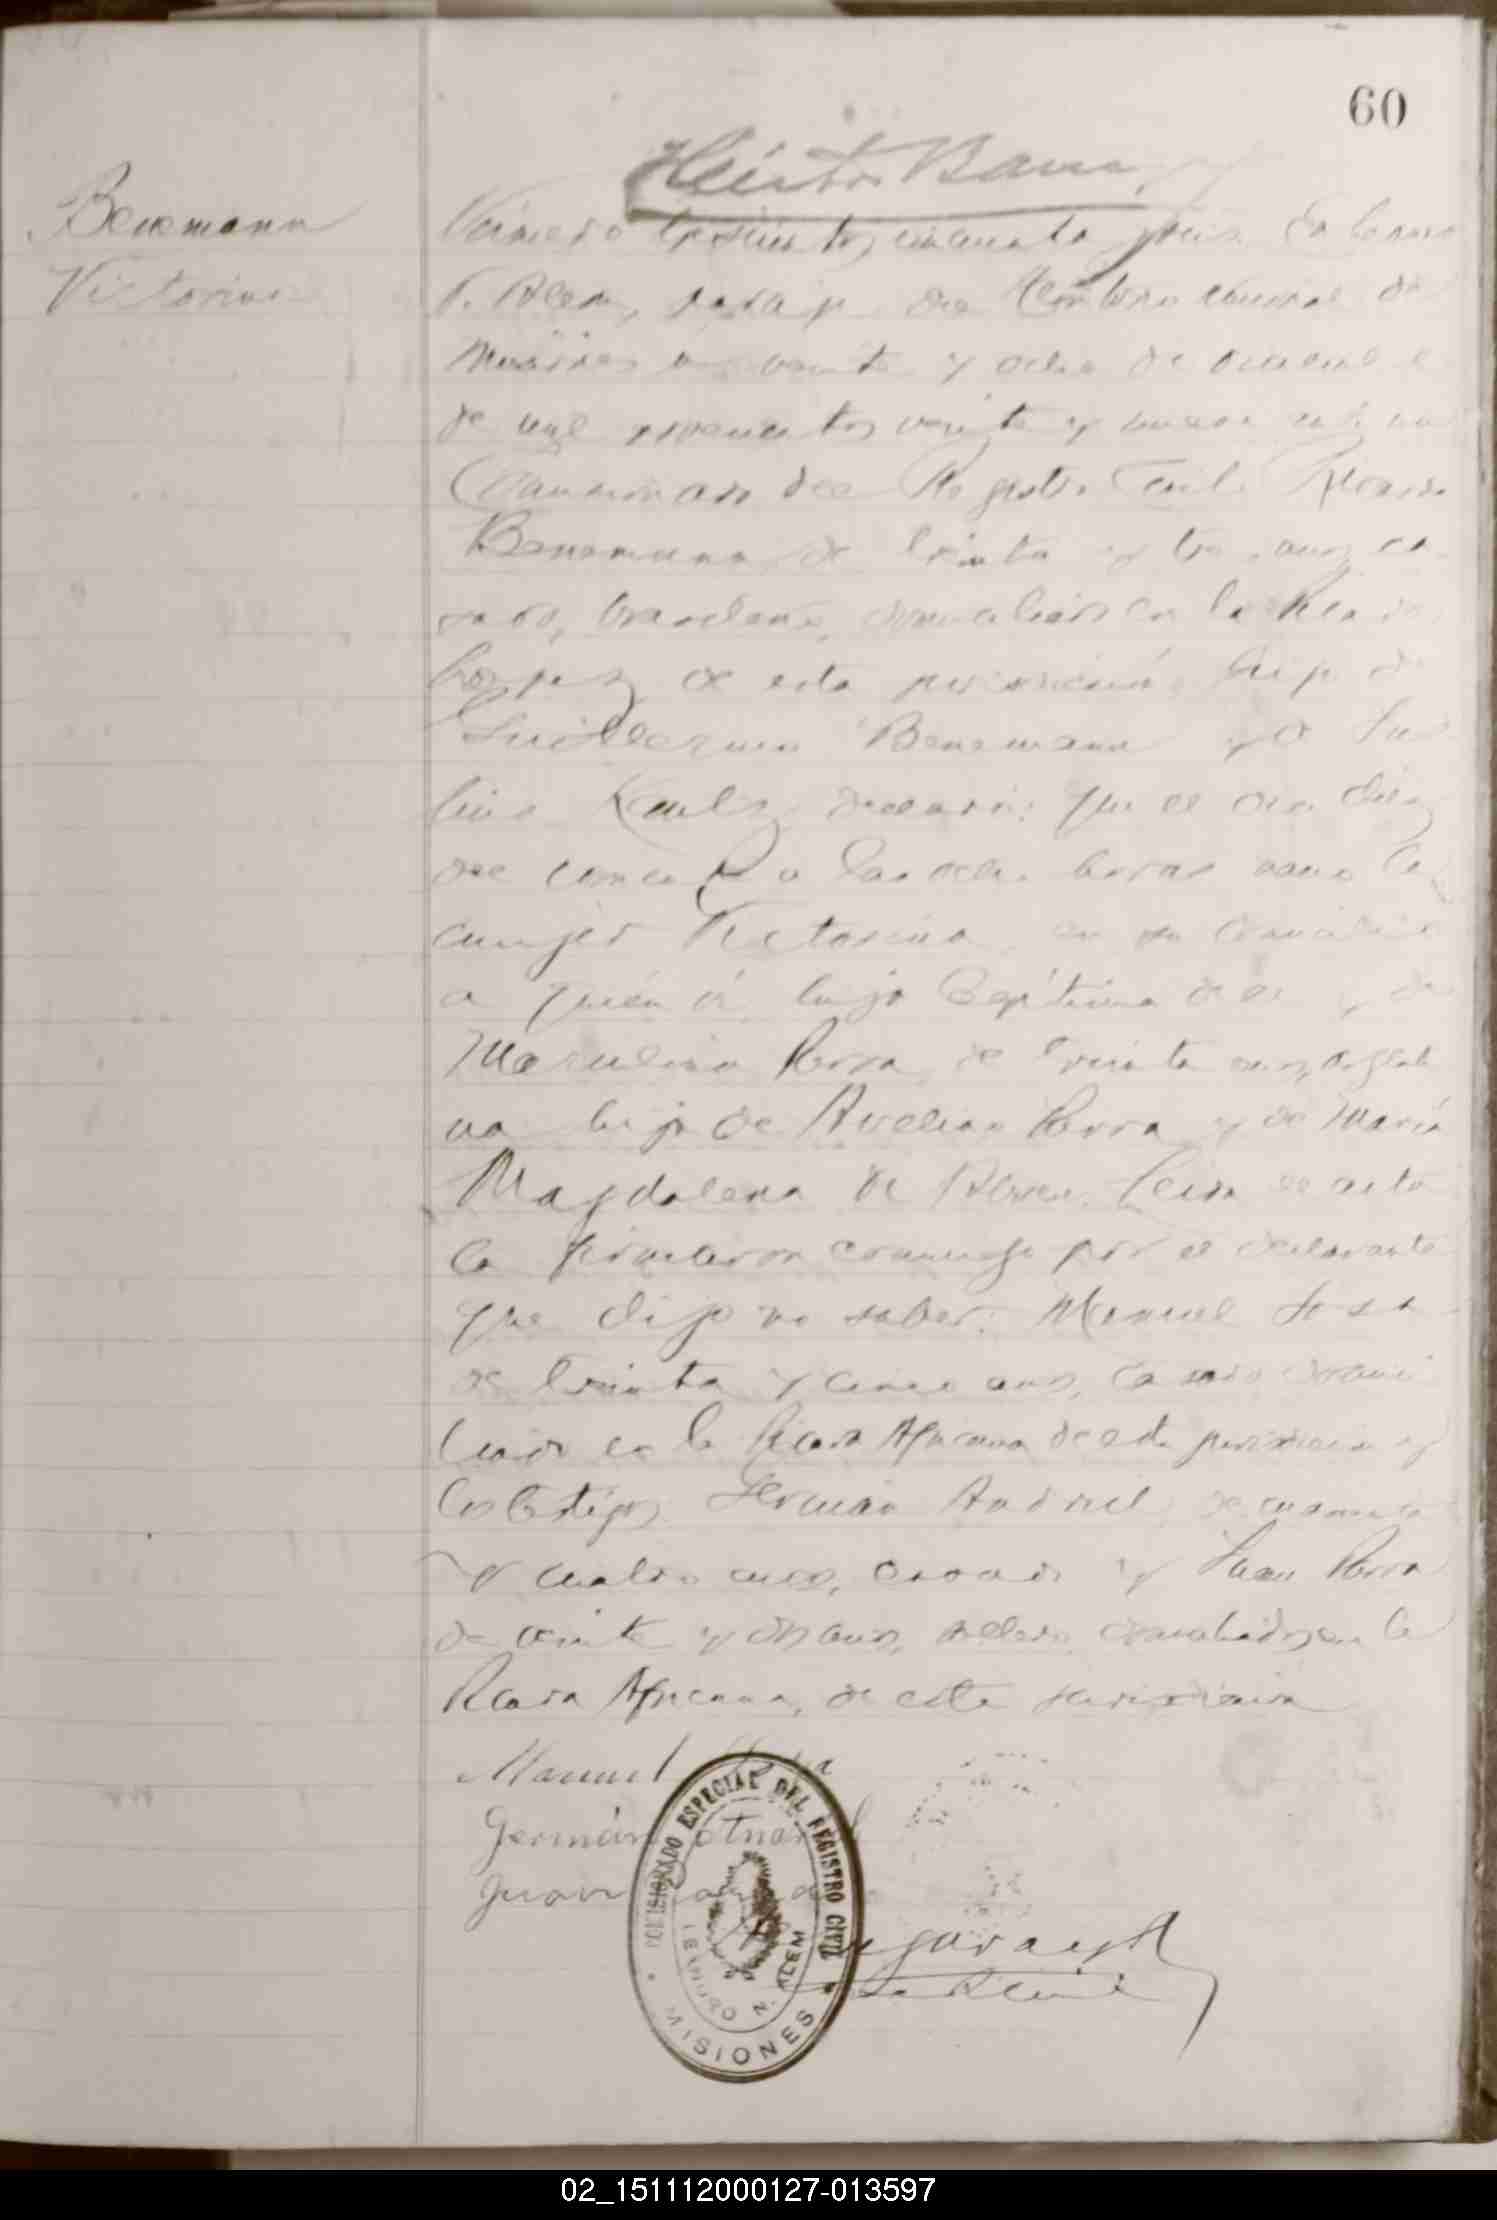 60
Héctor Barra
Benemann
Victorina
Número trescientos cincuenta y seis En Leandro
N. Alem, paraje del Territorio Nacional de
Misiones a veinte y ocho de Diciembre
de mil novecientos veinte y nueve ante mi
Comisionado del Registro Civil Ricardo
Benemann de treinta y tres años, ca-
sado, brasileño, domiciliado en la Picada
López de esta jurisdicción hijo de
Guillermo Benemann y de
declaró: Que el día diez
del corriente a las ocho horas nació la
mujer Victorina en su domicilio
a quién vi, hija legítima de él y de
Marculina Parra de treinta años,
na hija de Avelino Parra y de María
Magdalena de Leida el acta
la firmaron conmigo por el declarante
que dijo no saber: Manuel Sosa
de treinta y cinco años, casado domici
liado en la Picada Africana de esta jurisdicción y
los testigos Germán de cuarenta
y cuatro años, casado y Juan Parra
de veinte y dos años, soltero domiciliados en la
Picada Africana, de esta jurisdicción
Manuel
Germán
Juan
COMISIONADO ESPECIAL DEL REGISTRO CIVIL
LEANDRO N. ALEM
MISIONES
02_151112000127-013597